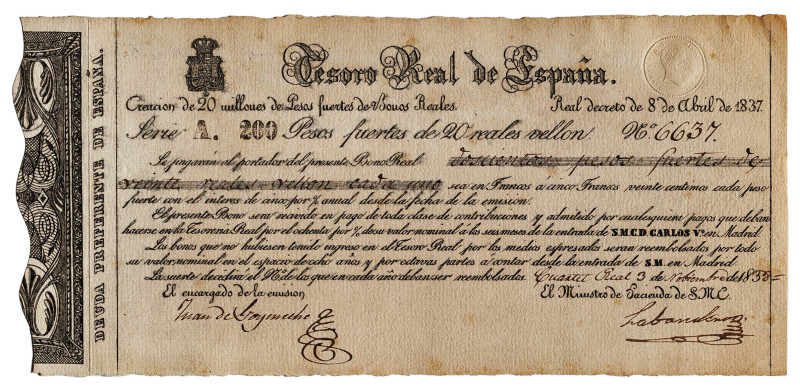 DEUDA PREFERENTE DE ESPAÑA.
Tesoro Real de España.
Creacion de 20 millones de Pesos fuertes de Bonos Reales. Real decreto de 8 de Abril de 1837.
Serie A. 200 Pesos fuertes de 20 reales vellon. Nº 6637.
Se pagarán al portador del presente Bono Real doscientos pesos fuertes de
veinte reales vellon cada uno, sea en Francos a cinco Francos veinte centimos cada peso
fuerte con el interes de cinco por % anual desde la fecha de la emision.
El presente Bono será recivido en pago de toda clase de contribuciones y admitido por cualesquiera pagos que deban
hacerse en la Tesoreria Real por el ochenta por % de su valor nominal a los seis meses de la entrada de S.M.C.D. CARLOS Vº. en Madrid
Los bonos que no hubiesen tenido ingreso en el Tesoro Real por los medios espresados seran reembolsados por todo
su valor nominal en el espacio de ocho años y por octavas partes a contar desde la entrada de S.M. en Madrid
La suerte decidirá el Nº de los que en cada año deban ser reembolsados. Cuartel Real 3 de Noviembre de 1838
El encargado de la emision El Ministro de Hacienda de S.M.C.
Juan de Goyeneche
Labandero